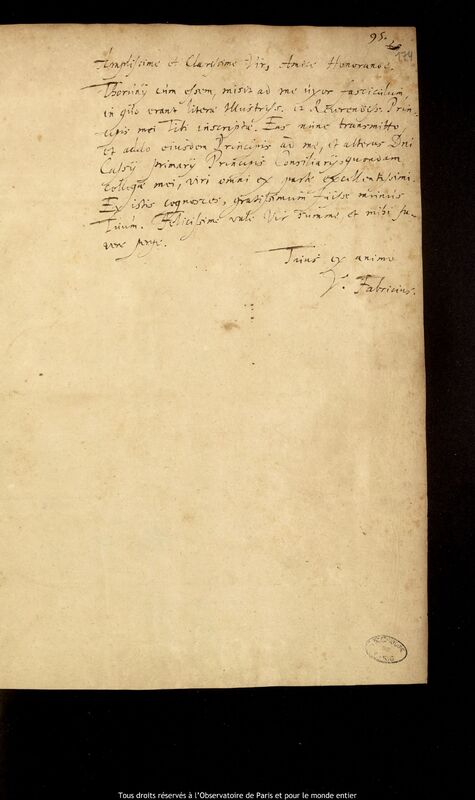 95.
174
Amplissime et Clarissime Vir, Amice Honorande.
Thorunij cum essem, misit ad me uxor fasciculum,
in quo erant literæ Illustriss. et Reverendiss. Prin-
cipis mei Tibi inscriptæ. Eas nunc transmitto,
Et addo eiusdem Principis ad me, et alteras Dni
Cassij primarij Principis Consiliarij quondam
Collegæ mei, viri omni ex parte excellentissimi.
Ex istis cognosces, gratissimum fuisse munus
Tuum. Felicissime vale Vir Summe, et mihi fa-
vere perge.
Tuus ex animo
Fabricius.
Tous droits réservés à l'Observatoire de Paris et pour le monde entier